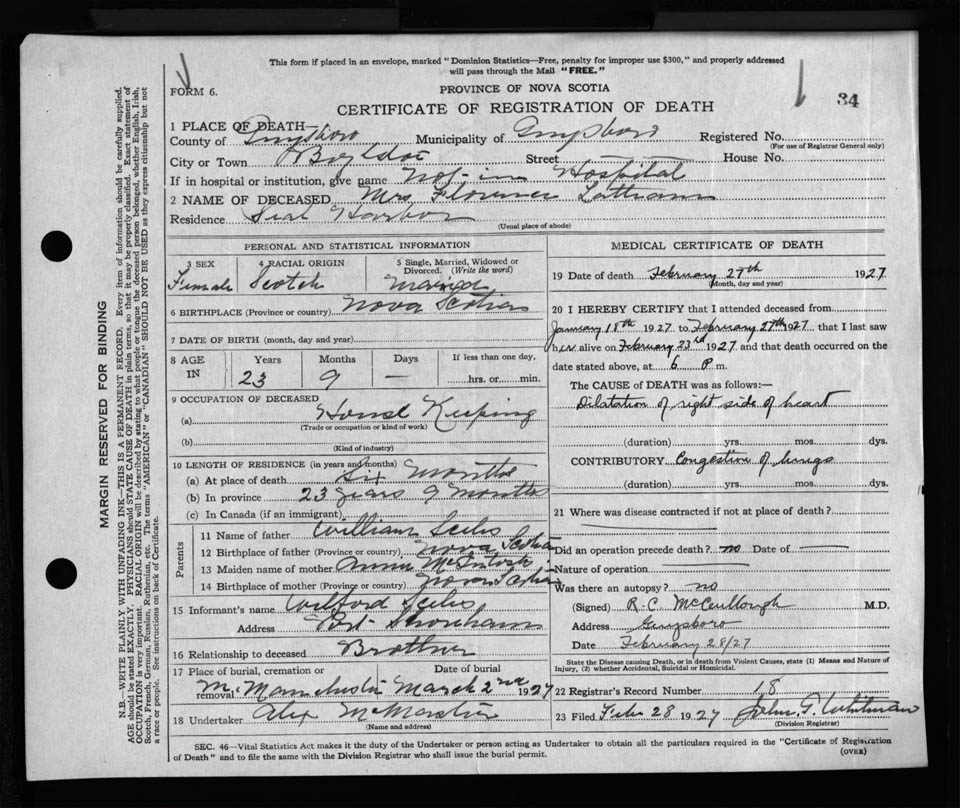 This form if placed in an envelope, marked "Dominion Statistics—Free, penalty for improper use $300," and properly addressed
will pass through the Mail "FREE."
FORM 6.
PROVINCE OF NOVA SCOTIA
34
CERTIFICATE OF REGISTRATION OF DEATH
1 PLACE OF DEATH—
County of Guysboro Municipality of Guysboro Registered No.
(For use of Registrar General only)
City or Town Street House No.
If in hospital or institution, give name Not in Hospital
2 NAME OF DECEASED Mrs Florence
Residence Seal Harbor
(Usual place of abode)
PERSONAL AND STATISTICAL INFORMATION
3 SEX 4 RACIAL ORIGIN 5 Single, Married, Widowed or Divorced. (Write the word)
Female Scotch Married
6 BIRTHPLACE (Province or country) Nova Scotia
7 DATE OF BIRTH (month, day and year)
8 AGE IN Years Months Days If less than one day,
23 9 — hrs. or min.
9 OCCUPATION OF DECEASED
(a) House Keeping
(Trade or occupation or kind of work)
(b)
(Kind of industry)
10 LENGTH OF RESIDENCE (in years and months)
(a) At place of death Six Months
(b) In province 23 years 9 Months
(c) In Canada (if an immigrant)
Parents
11 Name of father William
12 Birthplace of father (Province or country) Nova Scotia
13 Maiden name of mother Annie McIntosh
14 Birthplace of mother (Province or country) Nova Scotia
15 Informant's name Wilford
Address Port Shoreham
16 Relationship to deceased Brother
17 Place of burial, cremation or removal Date of burial
Manchester March 2nd 1927
18 Undertaker Alex McMaster
(Name and address)
MEDICAL CERTIFICATE OF DEATH
19 Date of death February 27th 1927
(Month, day and year)
20 I HEREBY CERTIFY that I attended deceased from
January 18th 1927 to February 27th 1927 that I last saw
her alive on February 23rd 1927 and that death occurred on the
date stated above, at 6 P m.
The CAUSE of DEATH was as follows:—
Dilatation of right side of heart
(duration) yrs. mos. dys.
CONTRIBUTORY Congestion of lungs
(duration) yrs. mos. dys.
21 Where was disease contracted if not at place of death?
Did an operation precede death? no Date of —
Nature of operation —
Was there an autopsy? no
(Signed) R. C. McCullough M.D.
Address Guysboro
Date February 28/27
State the Disease causing Death, or in death from Violent Causes, state (1) Means and Nature of
Injury, (2) whether Accidental, Suicidal or Homicidal.
22 Registrar's Record Number 18
23 Filed Feb 28 1927 John G. Whitman
(Division Registrar)
SEC. 46—Vital Statistics Act makes it the duty of the Undertaker or person acting as Undertaker to obtain all the particulars required in the "Certificate of Registration
of Death" and to file the same with the Division Registrar who shall issue the burial permit.
(OVER)
MARGIN RESERVED FOR BINDING
N.B.—WRITE PLAINLY WITH UNFADING INK—THIS IS A PERMANENT RECORD. Every item of information should be carefully supplied.
AGE should be stated EXACTLY. PHYSICIANS should STATE CAUSE OF DEATH in plain terms, so that it may be properly classified. Exact statement of
OCCUPATION is very important. RACIAL ORIGIN will be described by stating to what people or tongue the deceased person belonged, whether English, Irish,
Scotch, French, German, Russian, Ruthenian, etc. The terms "AMERICAN" or "CANADIAN" SHOULD NOT BE USED as they express citizenship but not
a race or people. See instructions on back of Certificate.